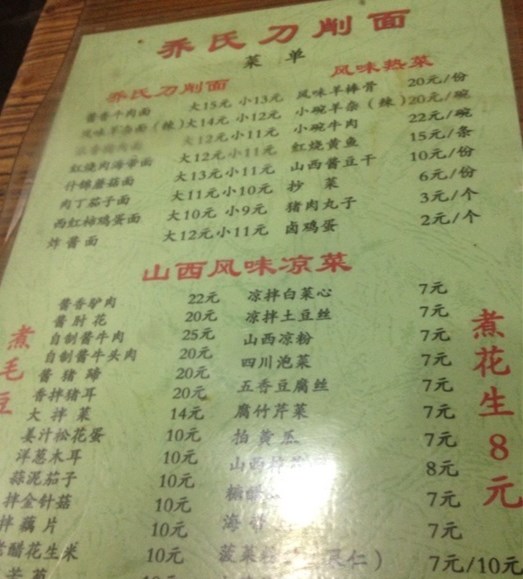 乔氏刀削面
菜单
乔氏刀削面
酱香牛肉面 大15元 小13元
风味羊杂面(辣) 大14元 小12元
大12元 小11元
红烧肉海带面 大12元 小11元
什锦蘑菇面 大13元 小11元
肉丁茄子面 大11元 小10元
西红柿鸡蛋面 大10元 小9元
炸酱面 大12元 小11元
风味热菜
风味羊棒骨 20元/份
小碗羊杂(辣) 20元/碗
小碗牛肉 22元/碗
红烧黄鱼 15元/条
山西酱豆干 10元/份
抄菜 6元/份
猪肉丸子 3元/个
卤鸡蛋 2元/个
山西风味凉菜
酱香驴肉 22元
酱肘花 20元
自制酱牛肉 25元
自制酱牛头肉 20元
酱猪蹄 20元
香拌猪耳 20元
大拌菜 14元
姜汁松花蛋 10元
洋葱木耳 10元
蒜泥茄子 10元
拌金针菇 10元
拌藕片 10元
老醋花生米 10元
凉拌白菜心 7元
凉拌土豆丝 7元
山西凉粉 7元
四川泡菜 7元
五香豆腐丝 7元
腐竹芹菜 7元
拍黄瓜 7元
山西 8元
7元
海 7元
菠菜 果仁) 7元/10元
煮毛豆
煮花生8元